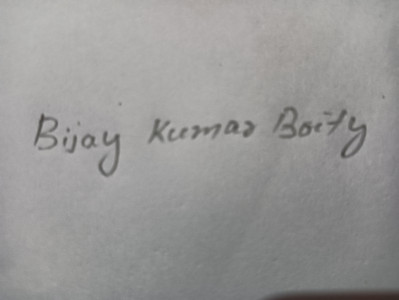 Bijay Kumar Boity